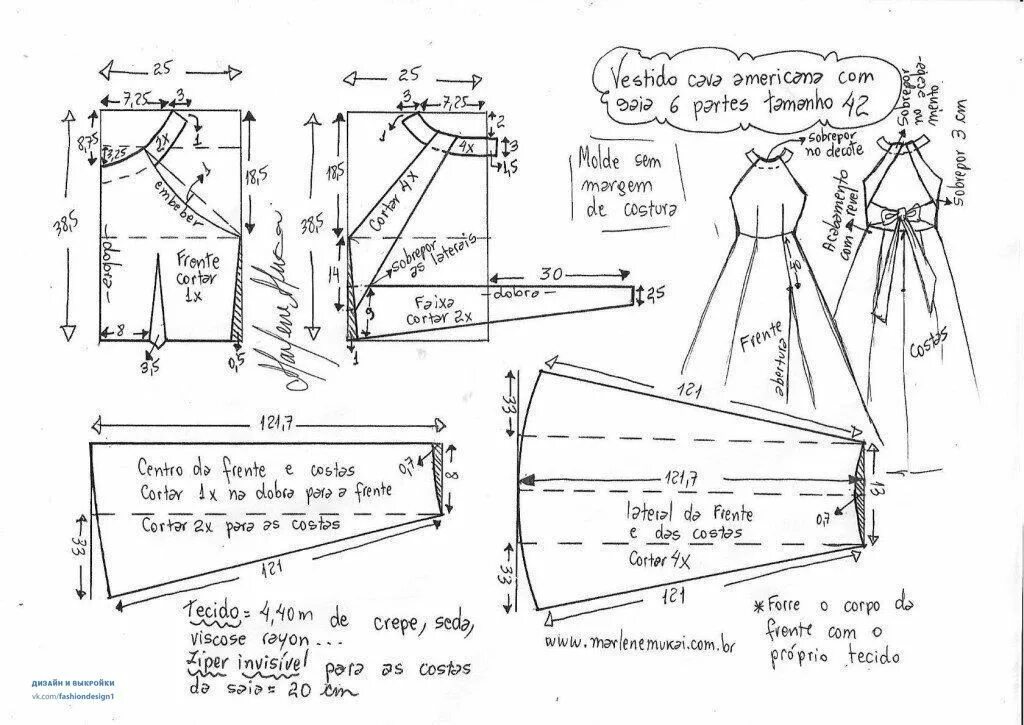 Vestido cava americana com
saia 6 partes tamanho 42
Molde sem
margem
de costura
25
7,25
3
1
8,75
3,25
2x
1
embeber
18,5
38,5
dobra
Frente
cortar
1x
8
3,5
0,5
25
3
7,25
1
2
3
4x
1,5
18,5
38,5
Cortar 4x
sobrepor
as laterais
14
9
30
dobra
2,5
Faixa
cortar 2x
1
sobrepor
no decote
sobrepor
sobrepor 3 cm
Acabamento
com revel
Frente
Costas
121,7
Centro da frente e costas
Cortar 1x na dobra para a frente
Cortar 2x para as costas
0,7
8
33
121
33
121
121,7
13
lateral da frente
e das costas
0,7
Cortar 4x
33
121
Tecido = 4,40m de crepe, seda,
viscose rayon ...
Ziper invisível para as costas
da saia = 20 cm
www.marlenemukai.com.br
*Forre o corpo da
frente com o
próprio tecido
ДИЗАЙН И ВЫКРОЙКИ
vk.com/fashiondesign1